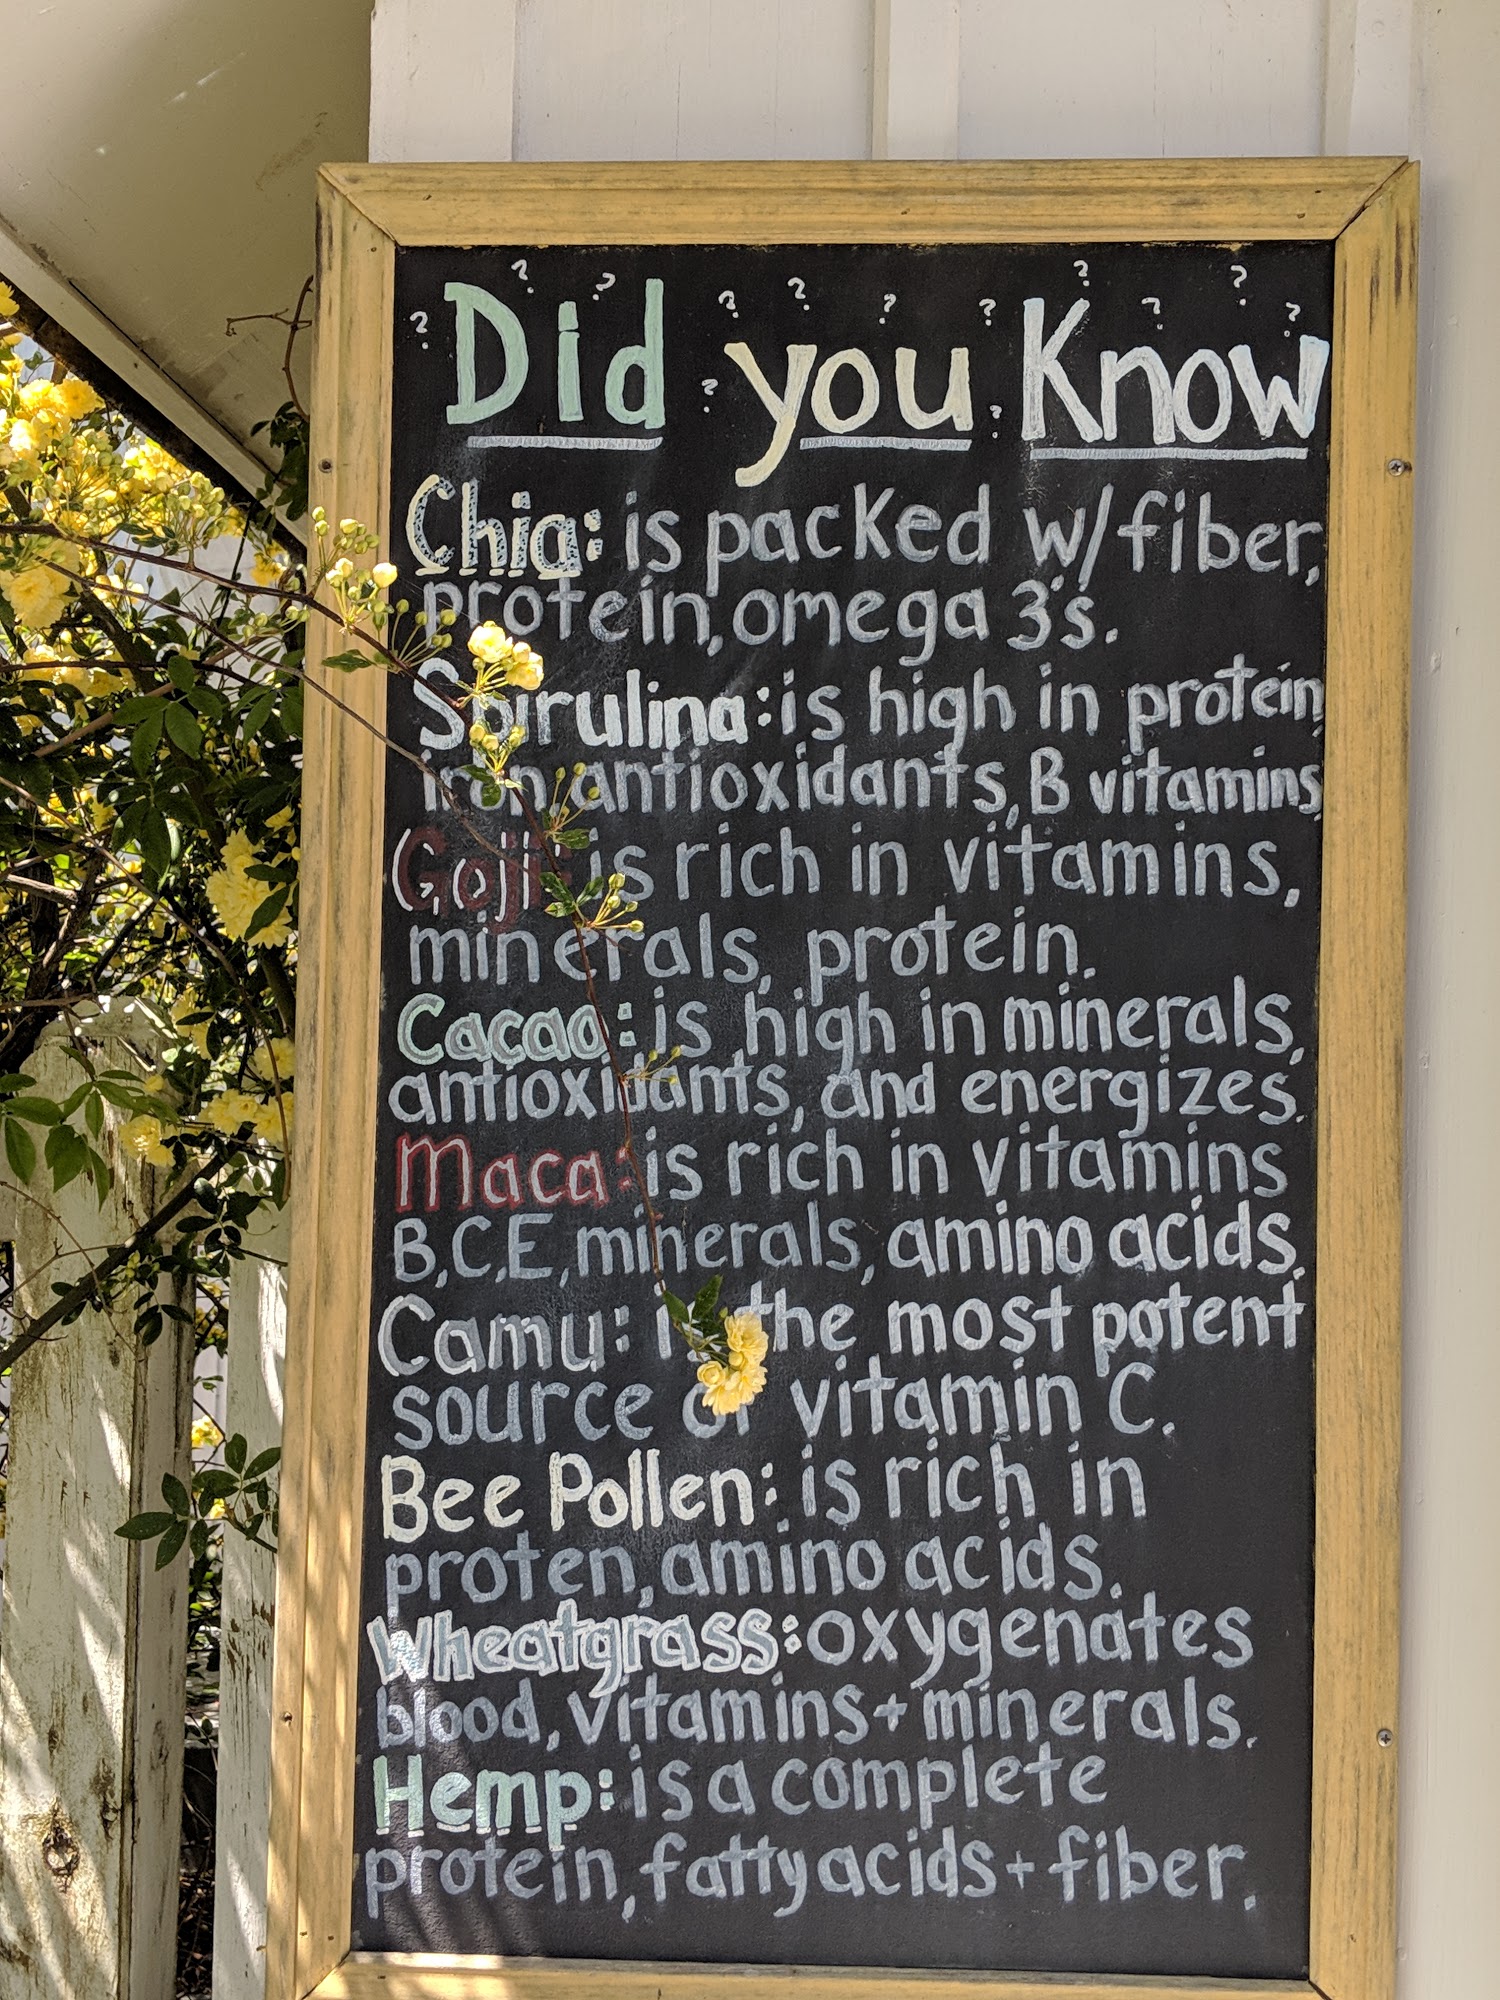 Did you Know
Chia: is packed w/fiber,
protein, omega 3's.
Spirulina: is high in protein
iron, antioxidants, B vitamins
Goji: is rich in vitamins,
minerals, protein.
Cacao: is high in minerals,
antioxidants, and energizes.
Maca: is rich in vitamins
B,C,E, minerals, amino acids.
Camu: is the most potent
source of vitamin C.
Bee Pollen: is rich in
proten, amino acids.
Wheatgrass: oxygenates
blood, vitamins + minerals.
Hemp: is a complete
protein, fatty acids + fiber.